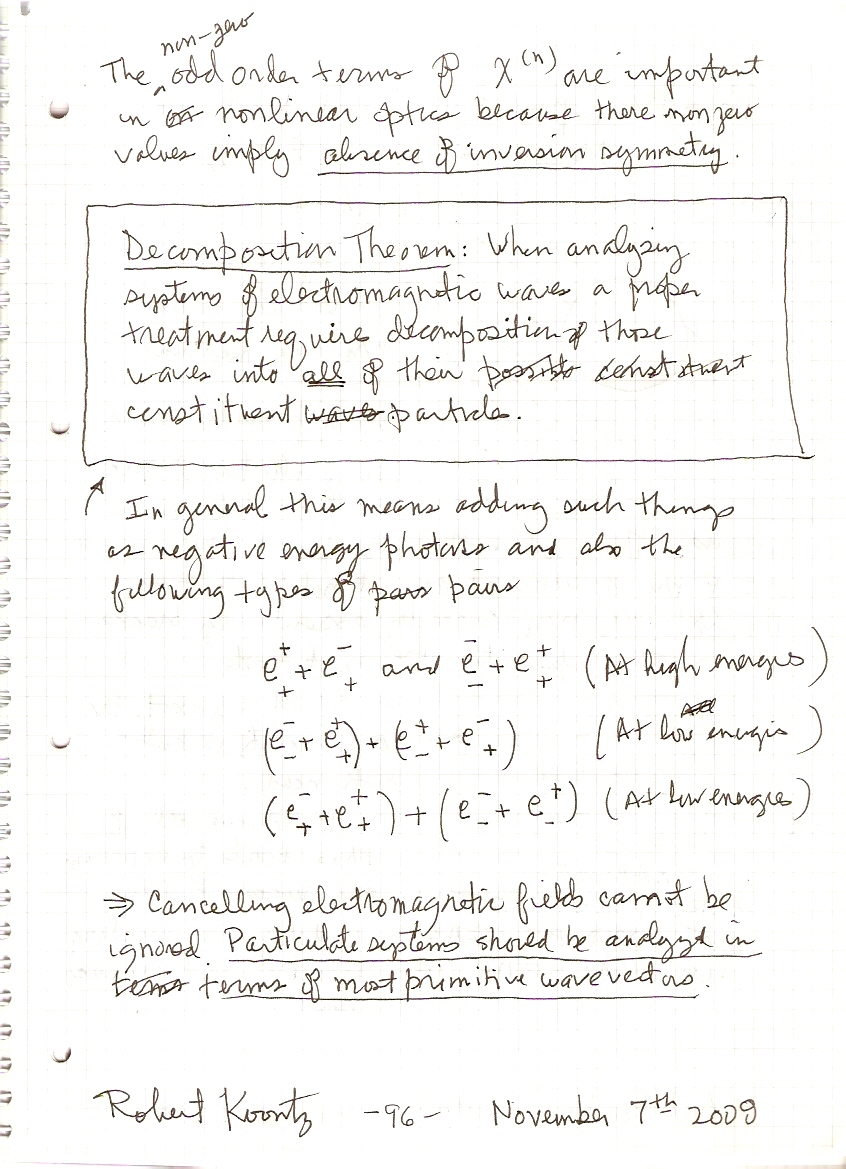 non-zero
The ^ odd order terms of χ(n) are important
in or nonlinear optics because there nonzero
values imply absence of inversion symmetry.
Decomposition Theorem: When analyzing
systems of electromagnetic waves a proper
treatment require decomposition of those
waves into all of their possible constituent
constituent wave particles.
In general this means adding such things
as negative energy photons and also the
following types of pars pairs
e⁺₊ + e⁻₊ and e⁻₋ + e⁺₊ (At high energies)
(e⁻₋ + e⁺₊) + (e⁺₋ + e⁻₊) (At low energies)
(e⁻₊ + e⁺₊) + (e⁻₋ + e⁺₋) (At low energies)
⇒ Cancelling electromagnetic fields cannot be
ignored. Particulate systems should be analyzed in
terms terms of most primitive wavevectors.
Robert Koontz -96- November 7th 2009